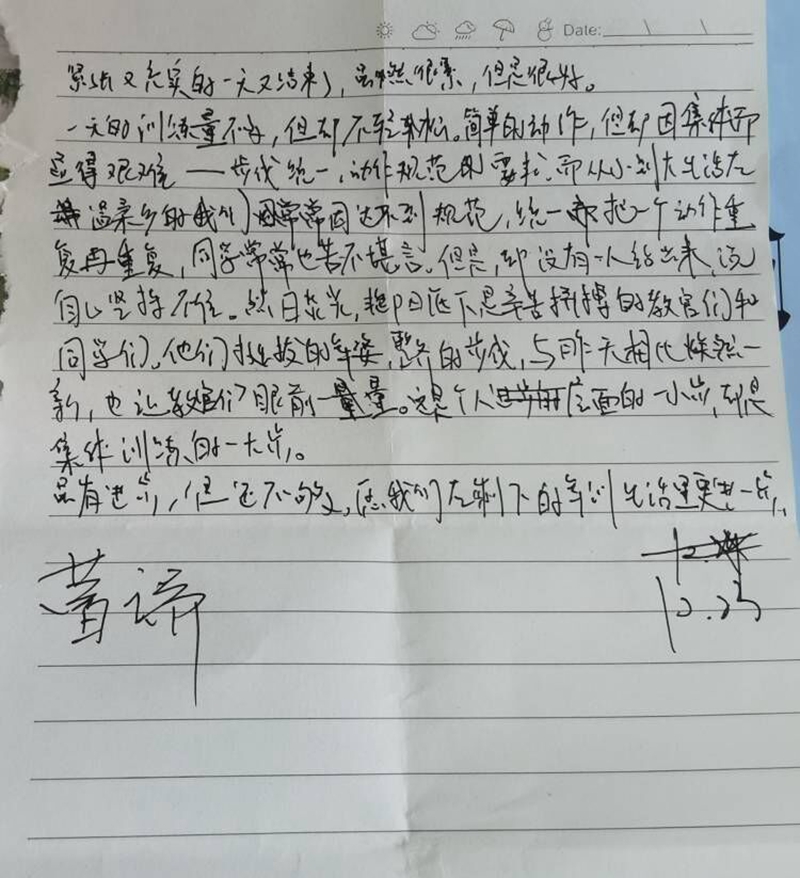 Date:
紧张又充实的一天又结束了，虽然很累，但是很好。
一天的训练量不多，但却不轻松。简单的动作，但却因集体而
显得艰难——步伐统一，动作规范的要求，而从小到大生活在
温柔乡的我们常常因达不到规范，统一而把一个动作重
复再重复，同学常常也苦不堪言。但是，却没有一人站出来，说
自己坚持不住。烈日炎炎，挡不住下是辛苦拼搏的教官们和
同学们。他们挺拔的军姿，整齐的步伐，与昨天相比焕然一
新，也让教官们眼前一量。这是个人层面的一小步，却是
集体训练的一大步。
虽有进步，但还不够，愿我们在剩下的军训生活里更进一步。
12.23